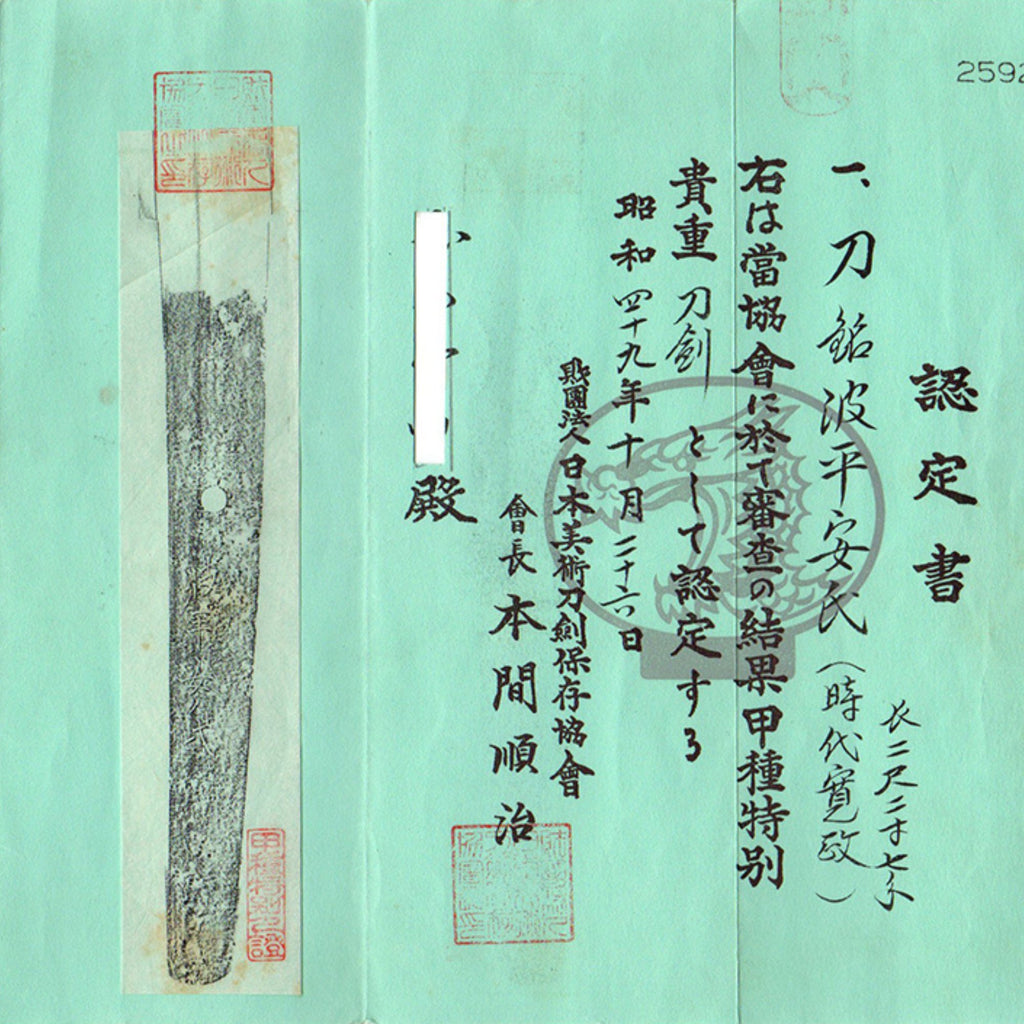 2592
認定書
一、刀 銘波平安氏（時代寛政）
長二尺二寸七分
右は當協會に於て審査の結果甲種特別
貴重刀剣として認定する
昭和四十九年十月二十六日
財團法人日本美術刀劍保存協會
會長本間順治
殿
甲種特別之證